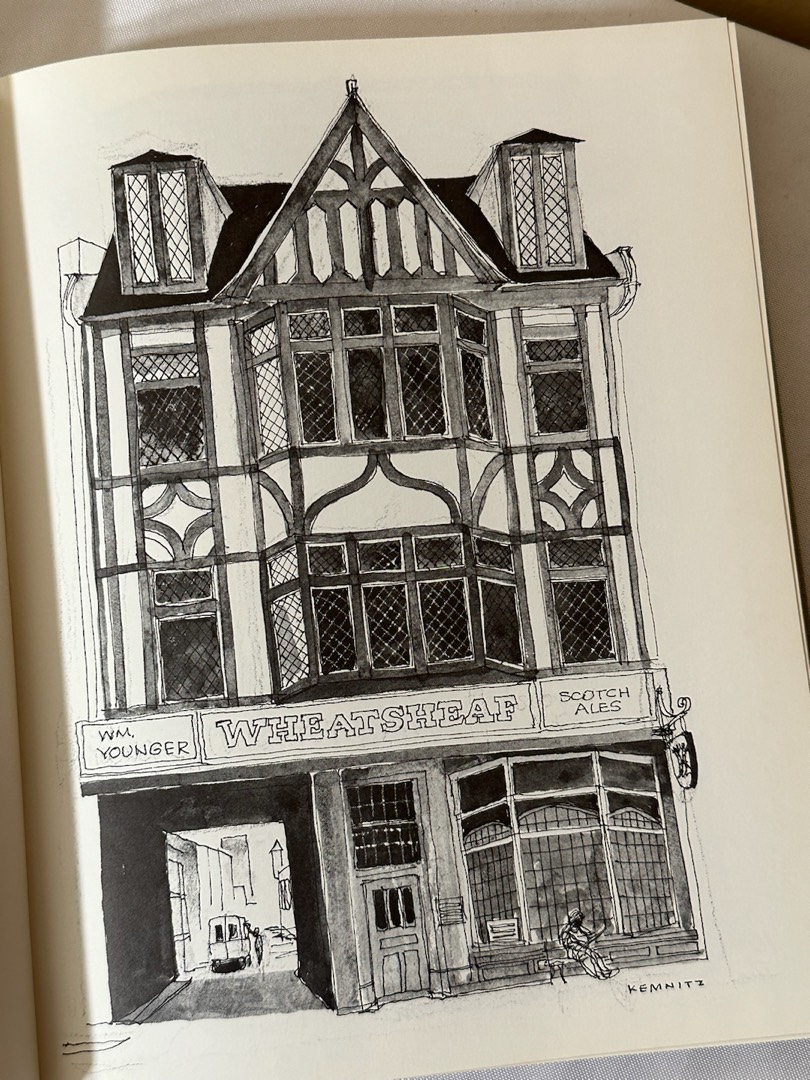 WM.
YOUNGER
WHEATSHEAF
SCOTCH
ALES
KEMNITZ